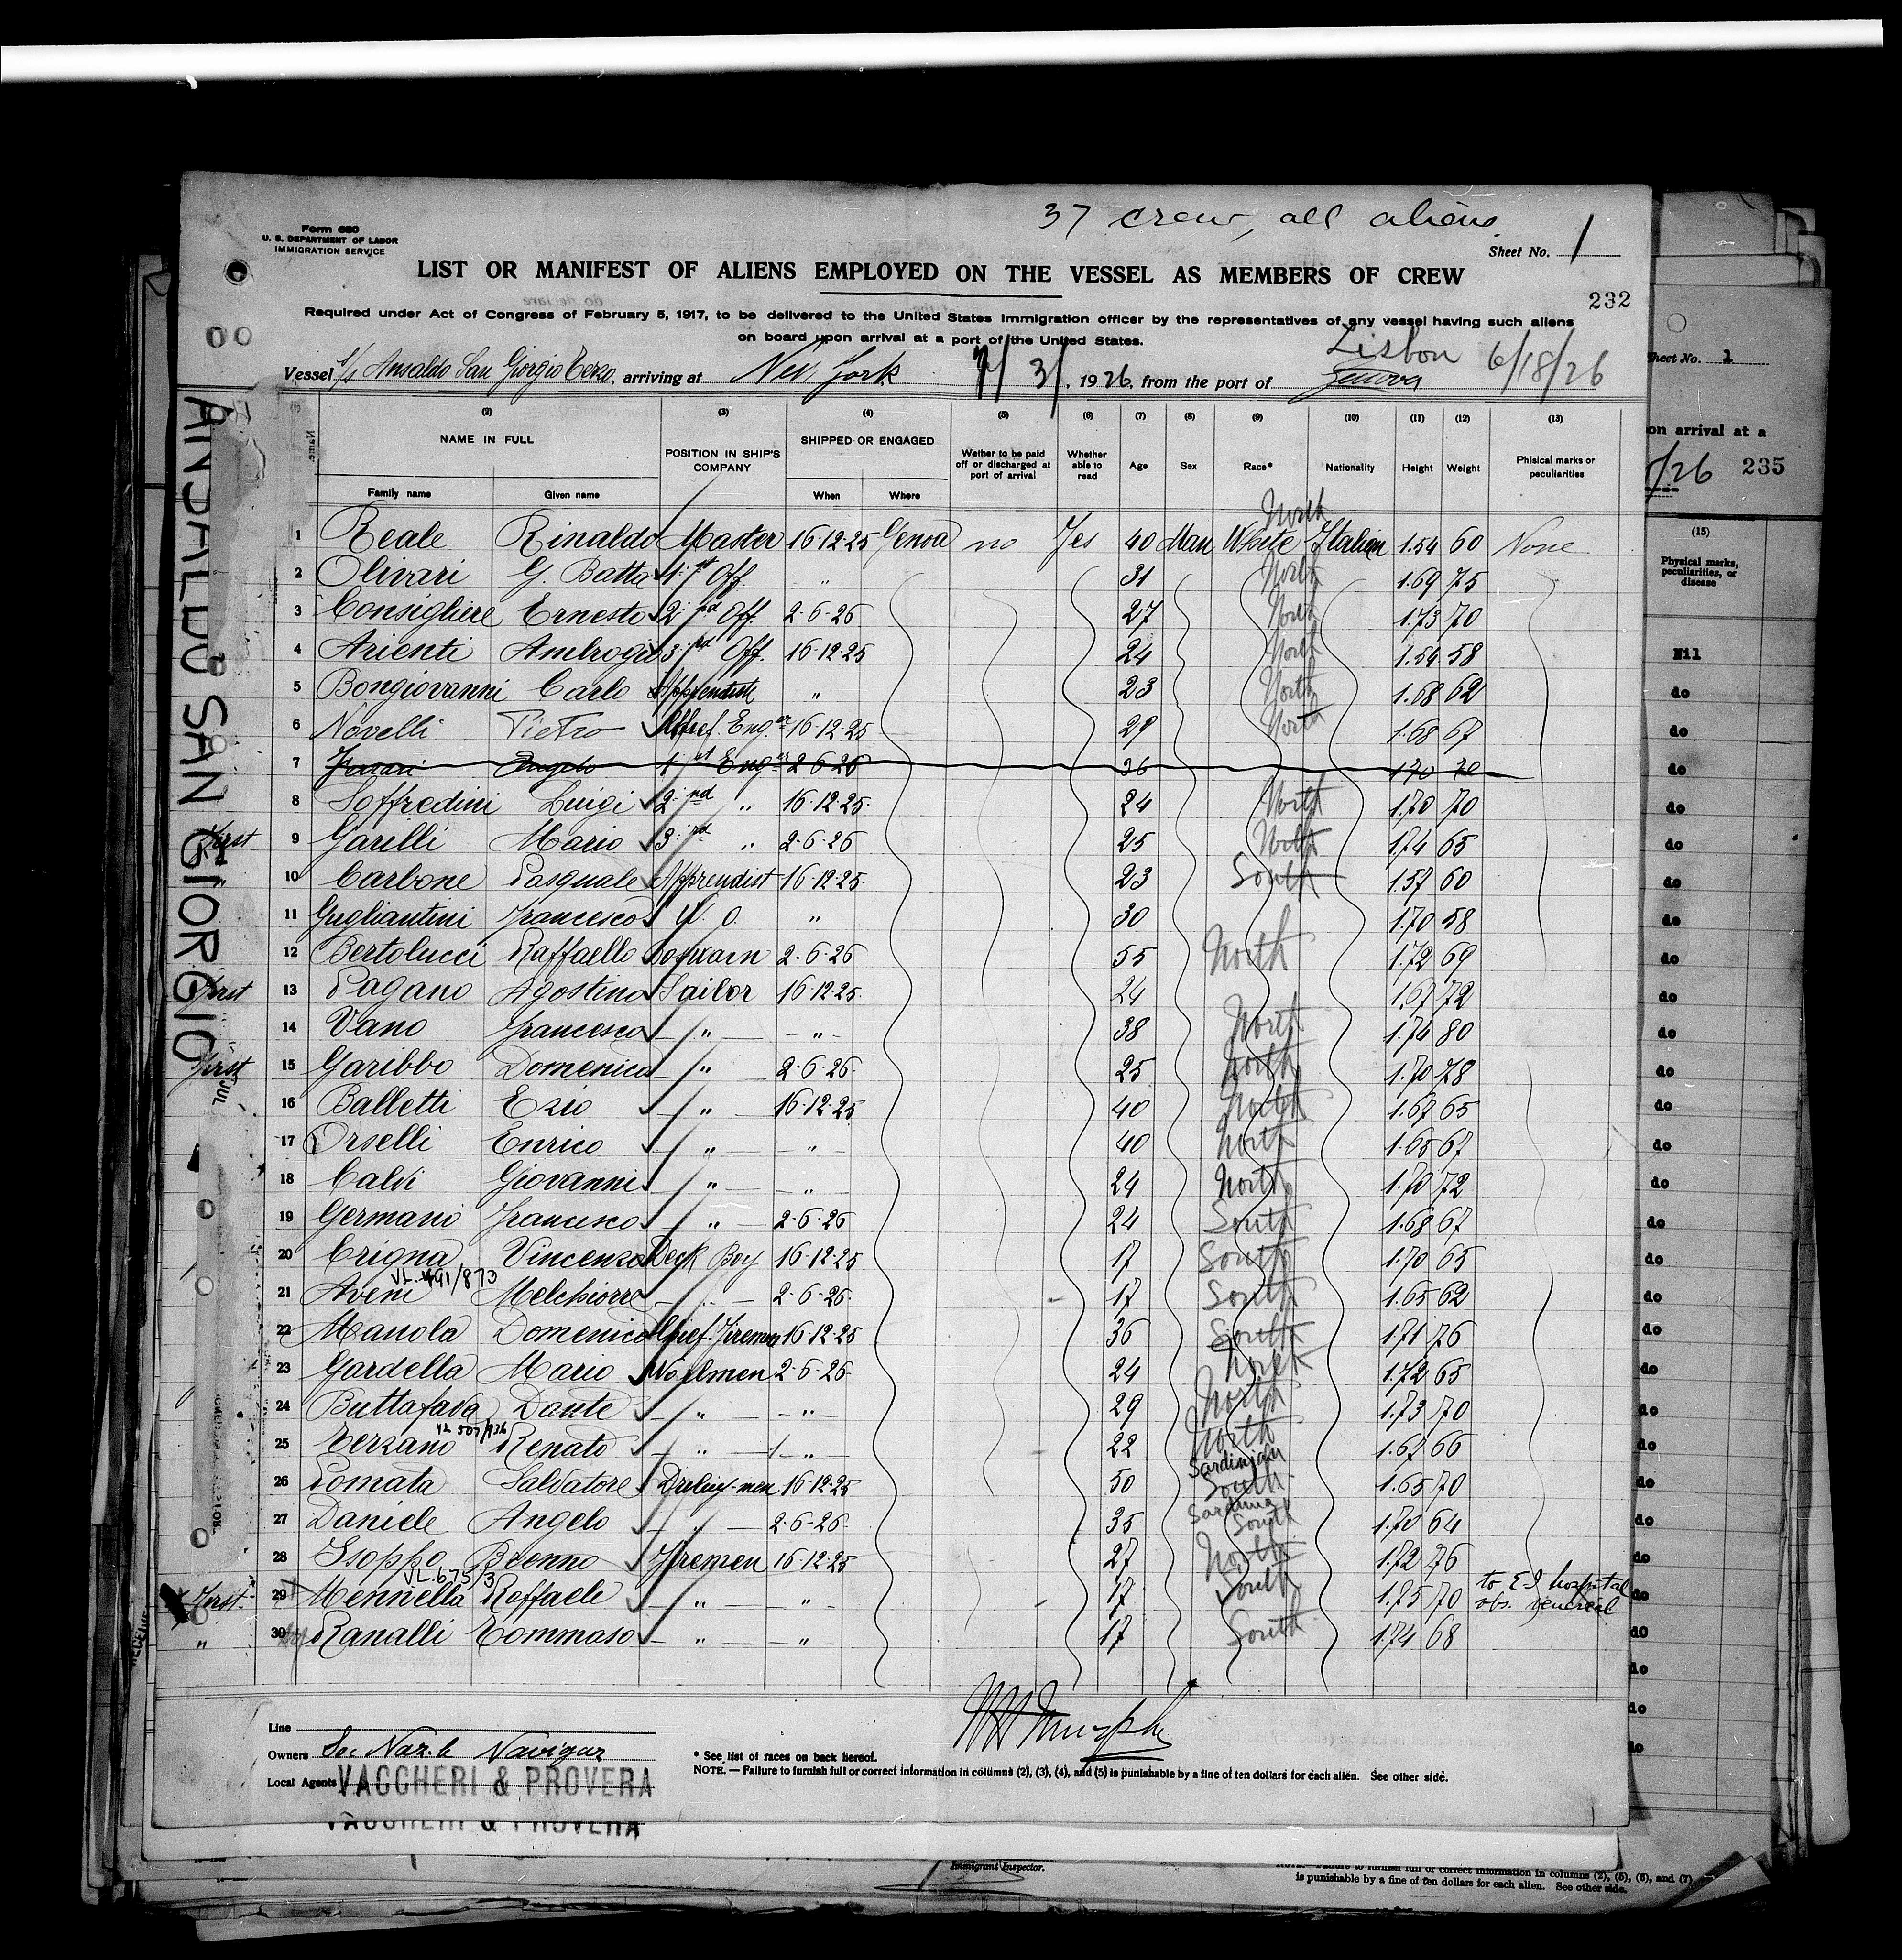 37 crew, all aliens
Form 680
U. S. DEPARTMENT OF LABOR
IMMIGRATION SERVICE
Sheet No. 1
LIST OR MANIFEST OF ALIENS EMPLOYED ON THE VESSEL AS MEMBERS OF CREW
232
Required under Act of Congress of February 5, 1917, to be delivered to the United States Immigration officer by the representatives of any vessel having such aliens
on board upon arrival at a port of the United States.
Lisbon 6/18/26
Vessel s/s Ansaldo San Giorgio Terzo, arriving at New York 7/3/, 1926, from the port of Genova
ANSALDO SAN GIORGIO
(1) (2) (3) (4) (5) (6) (7) (8) (9) (10) (11) (12) (13)
NAME IN FULL POSITION IN SHIP'S COMPANY SHIPPED OR ENGAGED Wether to be paid off or discharged at port of arrival Whether able to read Age Sex Race* Nationality Height Weight Phisical marks or peculiarities
Family name Given name When Where
North
1 Reale Rinaldo Master 16-12-25 Genoa no Yes 40 Man White Italian 1.54 60 None
2 Olivari G. Batta 1st Off. " 31 North 1.69 75
3 Consigliere Ernesto 2nd Off. 2-6-26 27 North 1.73 70
4 Arienti Ambrogio 3rd Off. 16-12-25 24 North 1.54 58
5 Bongiovanni Carlo Apprendist " 23 North 1.68 62
6 Novelli Pietro Chief. Eng.er 16-12-25 29 North 1.68 67
7 Ferrari Angelo 1st Eng.er 2-6-26 36 1.70 70
8 Soffredini Luigi 2nd " 16-12-25 24 North 1.70 70
First 9 Garilli Mario 3rd " 2-6-26 25 North 1.74 65
10 Carbone Pasquale Apprendist 16-12-25 23 South 1.57 60
11 Gugliantini Francesco W. O. " 30 1.70 58
12 Bertolucci Raffaello Boswain 2-6-26 55 North 1.72 69
First 13 Pagano Agostino Sailor 16-12-25 24 1.67 72
14 Vano Francesco " " 38 North 1.74 80
First 15 Garibbo Domenico " 2-6-26 25 North 1.70 78
16 Balletti Ezio " 16-12-25 40 North 1.67 65
17 Orselli Enrico " " 40 North 1.65 67
18 Calvi Giovanni " " 24 North 1.70 72
19 Germano Francesco " 2-6-26 24 South 1.68 67
20 Crigna Vincenzo Deck Boy 16-12-25 17 South 1.70 65
VL. 491/873
21 Aveni Melchiorre " 2-6-26 17 South 1.65 62
22 Manola Domenico Chief. Firemen 16-12-25 36 South 1.71 76
23 Gardella Mario 2-6-26 24 North 1.72 65
24 Buttafava Dante " " 29 North 1.73 70
25 Terzano Renato " " 22 North 1.67 66
Sardinian
26 Pomata Salvatore 16-12-25 50 South 1.65 70
27 Daniele Angelo " 2-6-26 35 South 1.70 64
28 Isoppo Brenno Firemen 16-12-25 27 North 1.72 76
VL. 675/3
First 29 Mennella Raffaele " " 17 South 1.75 70 to E I hospital obs. venereal
" 30 Ranalli Tommaso " " 17 South 1.74 68
Line
Owners Soc Naz.le Navigaz
Local Agents VACCHERI & PROVERA
VACCHERI & PROVERA
* See list of races on back hereof.
NOTE. — Failure to furnish full or correct information in columns (2), (3), (4), and (5) is punishable by a fine of ten dollars for each alien. See other side.
Immigrant Inspector.
is punishable by a fine of ten dollars for each alien. See other side.
Sheet No. 1
on arrival at a
/26 235
(15)
Physical marks, peculiarities, or disease
Nil
do
do
do
do
do
do
do
do
do
do
do
do
do
do
do
do
do
do
do
do
do
do
do
do
do
do
do
do
do